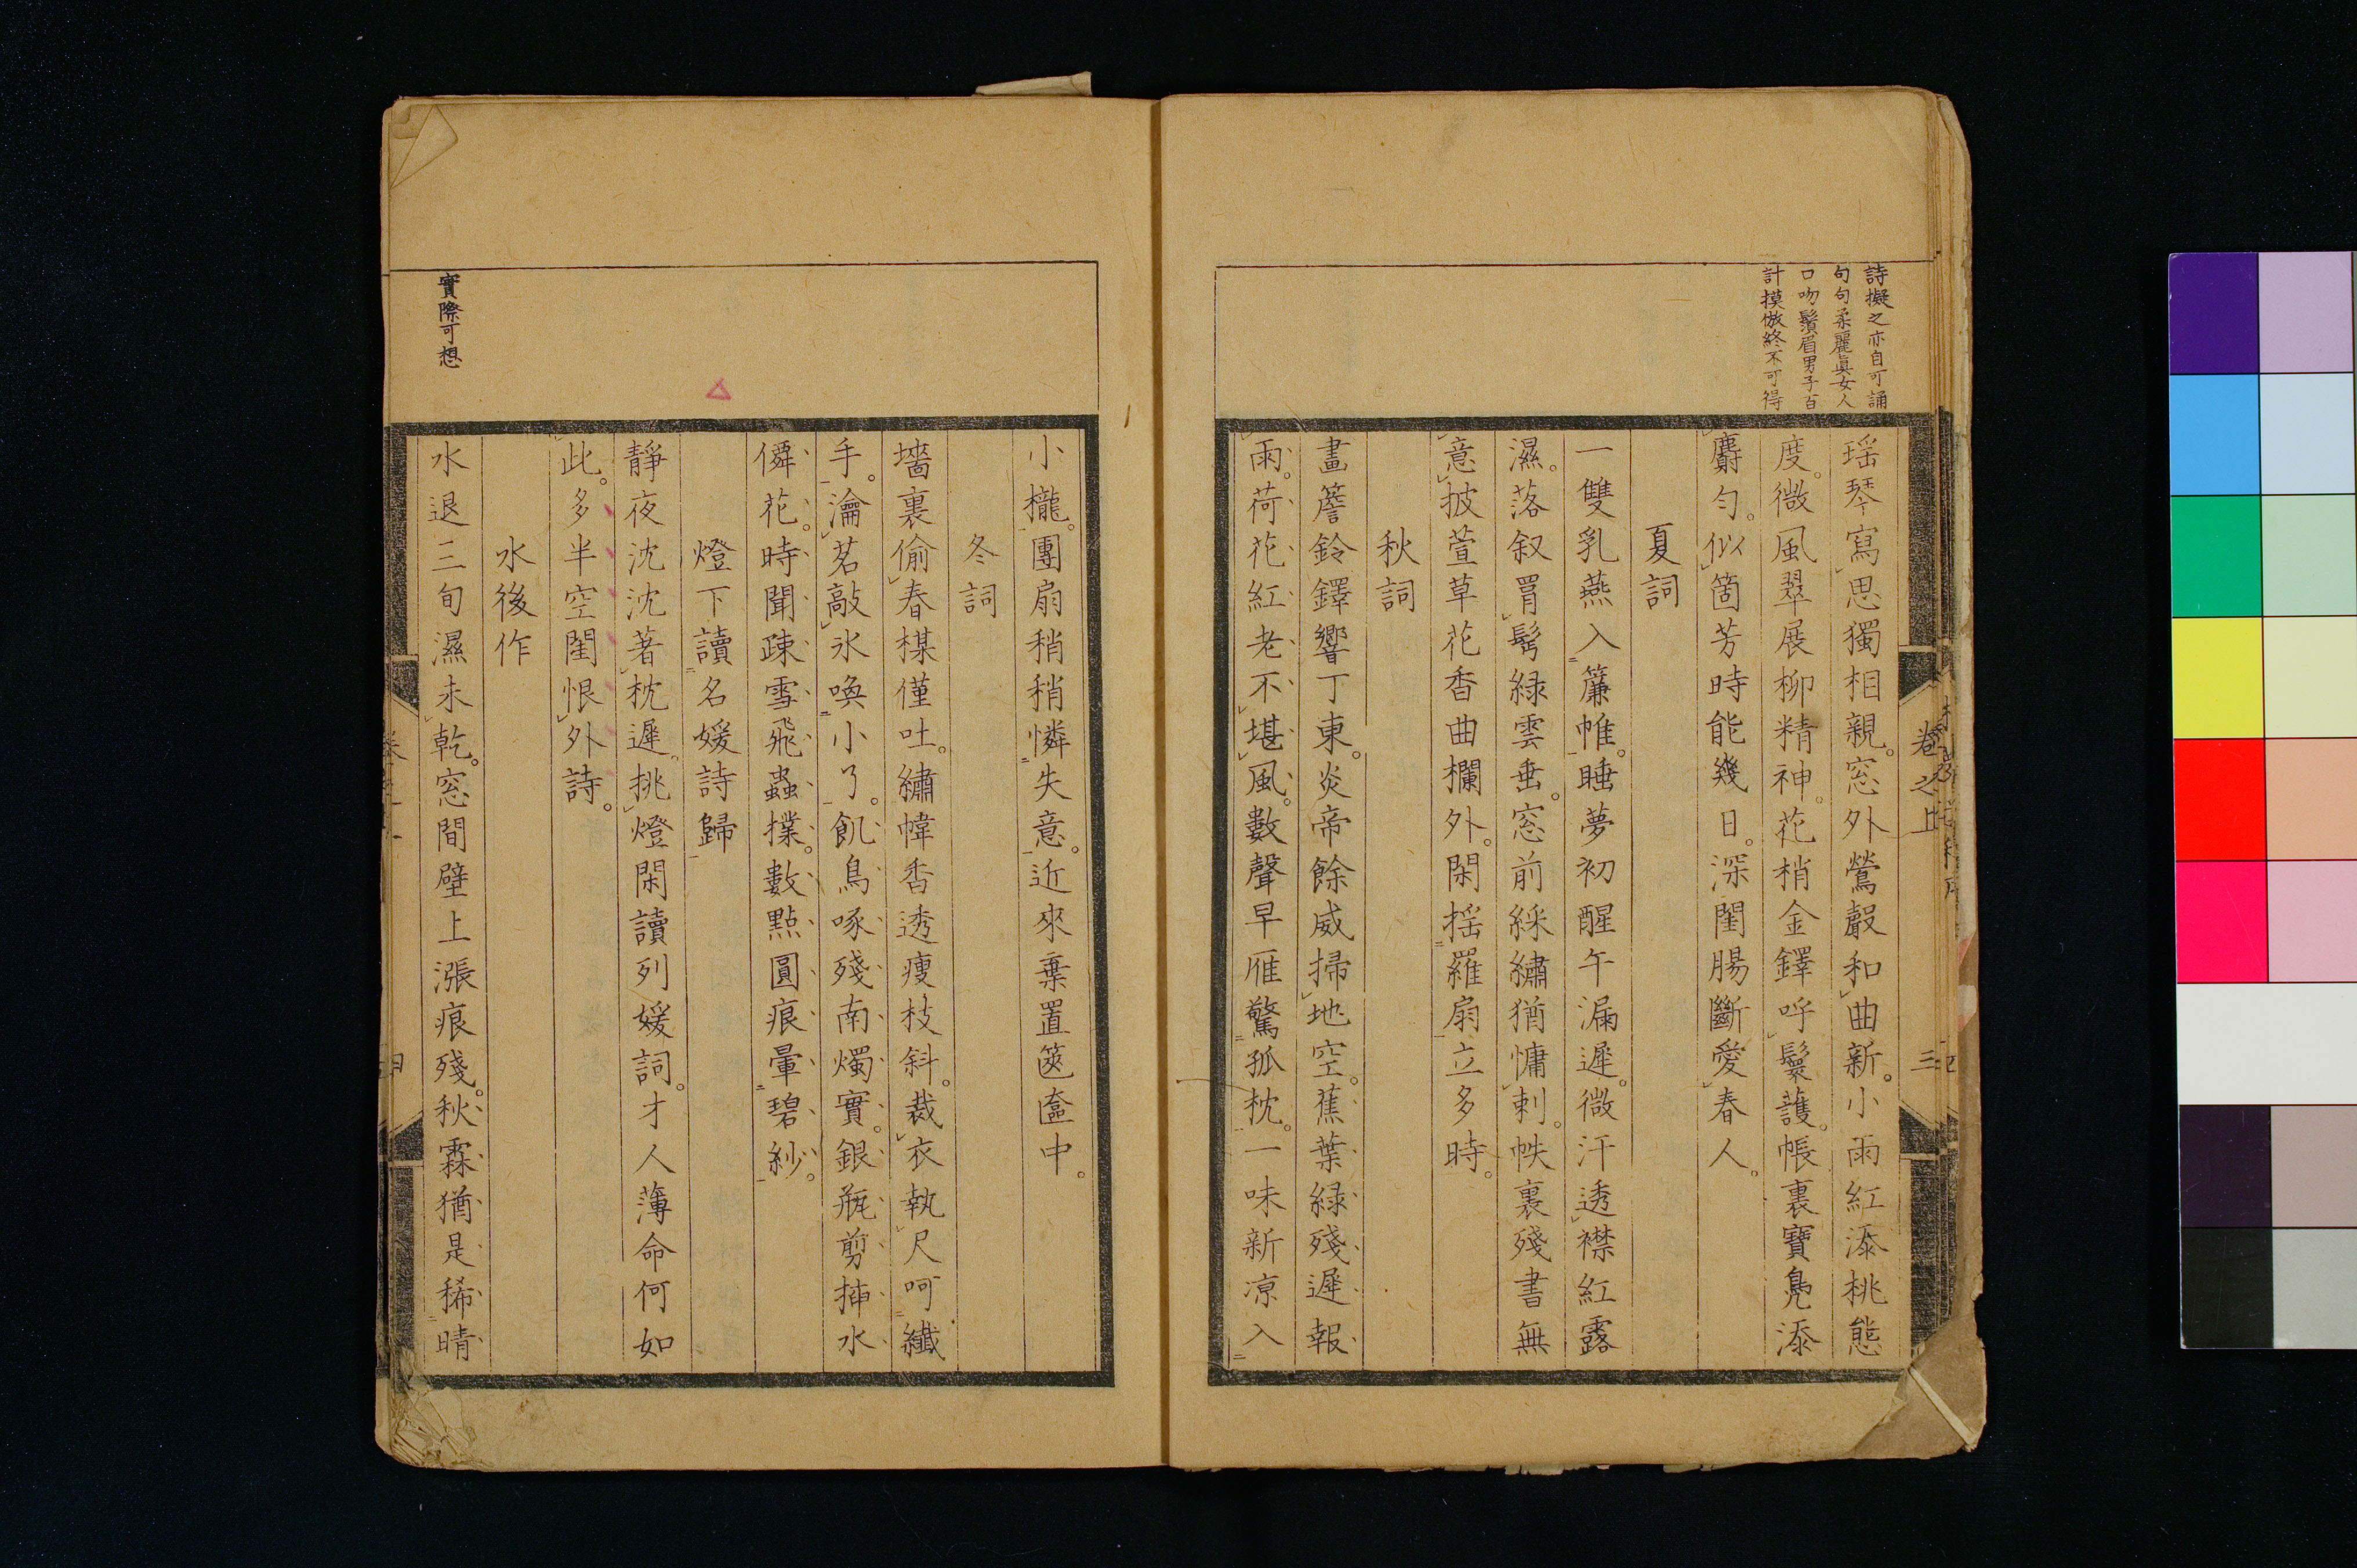 詩擬之亦自可誦
句句柔麗眞女人
口吻鬚眉男子百
計摸倣終不可得
瑶琴寫思獨相親。窓外鶯聲和曲新。小雨紅添桃態
度。微風翠展柳精神。花梢金鐸呼鬟護。帳裏寶鳧添
麝勻。似箇芳時能幾日。深閨腸斷愛春人。
夏詞
一雙乳燕入簾帷。睡夢初醒午漏遲。微汗透襟紅露
濕。落釵罥髩緑雲垂。窓前綵繡猶慵刺。帙裏殘書無
意披萱草花香曲欄外。閑揺羅扇立多時。
秋詞
畫簷鈴鐸響丁東。炎帝餘威掃地空。蕉葉緑殘遲報
雨。荷花紅老不堪風。數聲早雁驚孤枕。一味新凉入
小櫳。團扇稍稍憐失意。近來棄置篋奩中。
冬詞
墻裏偷春楳僅吐。繡幃香透瘦枝斜。裁衣執尺呵纖
手。瀹茗敲氷喚小了。飢鳥啄殘南燭實。銀瓶剪插水
僊花。時聞疎雪飛蟲撲。數點圓痕暈碧紗。
燈下讀名媛詩歸
靜夜沈沈著枕遲。挑燈閑讀列媛詞。才人薄命何如
此。多半空閨恨外詩。
水後作
實際可想
水退三旬濕未乾。窓間壁上漲痕殘。秋霖猶是稀晴
卷之上
三